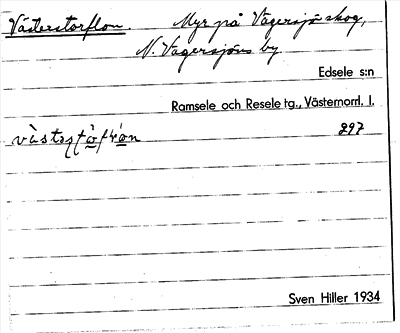 Västerstorflon. Myr på Vägersjö skog,
N. Vägersjöns by
Edsele s:n
Ramsele och Resele tg., Västernorrl. l.
297
Sven Hiller 1934